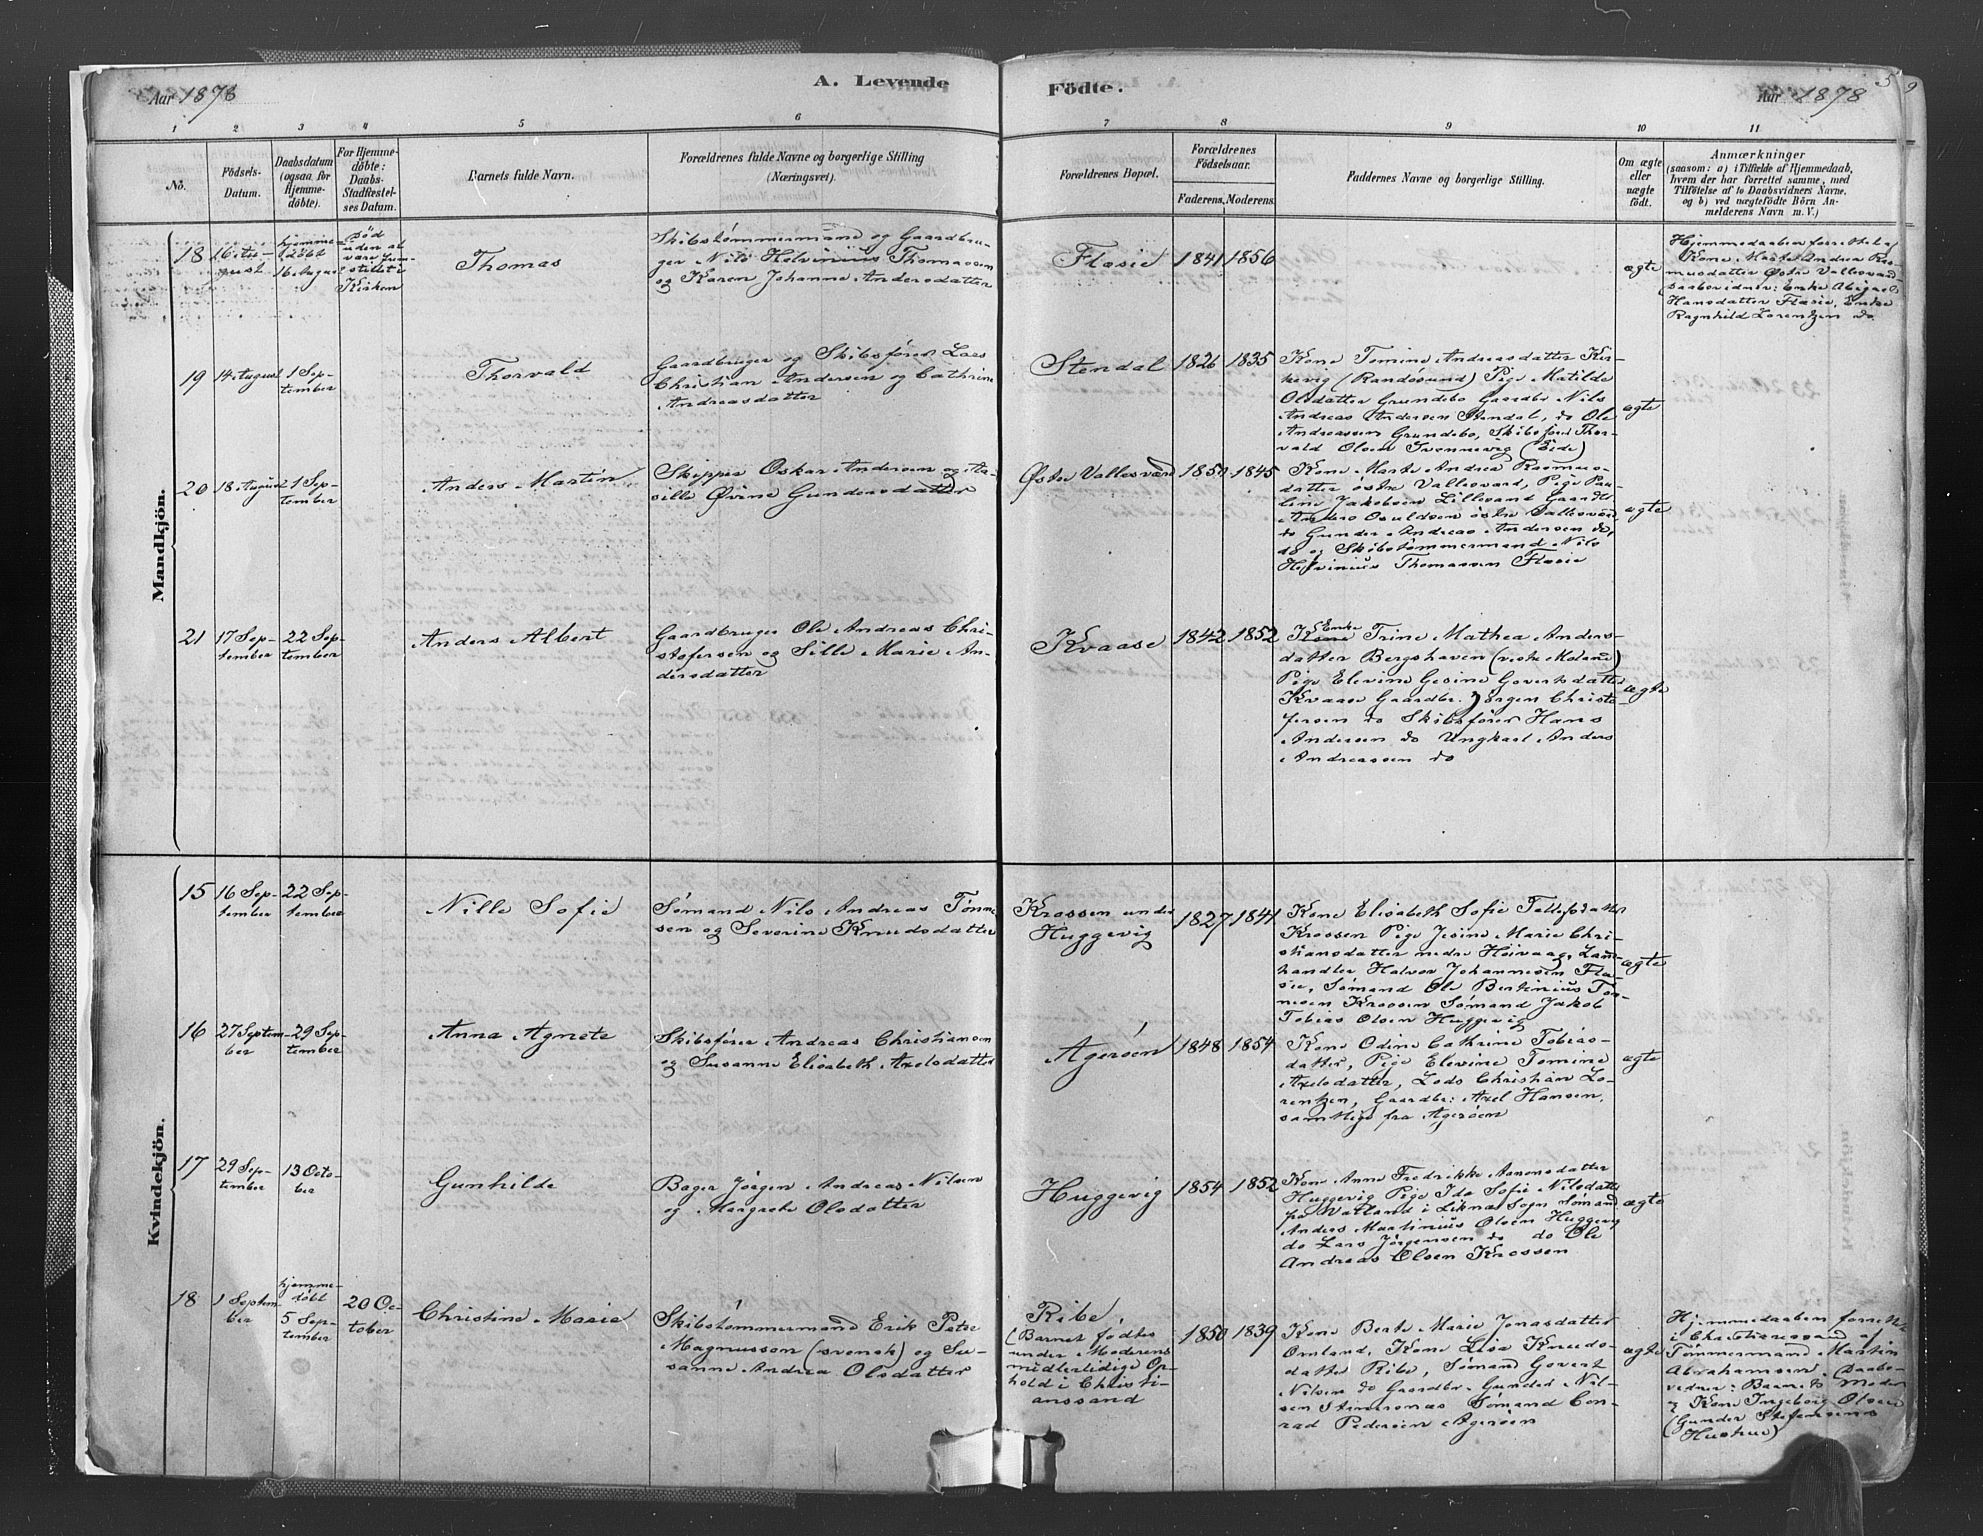 Aar 1878
A. Levende
Födte.
Aar 1878
5
9
1 2 3 4 5 6 7 8 9 10 11
No.
Födsels-
Datum.
Daabsdatum
(ogsaa for
Hjemme-
döbte).
For Hjemme-
döbte:
Daabs-
Stadfæstel-
ses Datum.
Barnets fulde Navn.
Forældrenes fulde Navne og borgerlige Stilling
(Næringsvei).
Forældrenes Bopæl.
Forældrenes
Födselsaar.
Faderens. Moderens.
Faddernes Navne og borgerlige Stilling.
Om ægte
eller
uægte
födt.
Anmærkninger
(saasom: a) i Tilfælde af Hjemmedaab,
hvem der har forrettet samme, med
Tilföielse af to Daabsvidners Navne,
og b) ved uægtefödte Börn An-
melderens Navn m. V.)
Mandkjön.
18
16 Au-
gust
hjemme-
döbt
16 August
Död
uden at
være
stillet i
Kirken
Thomas
Skibstømmermand og Gaardbru-
ger Nils Helvinius Thomassen
og Karen Johanne Andersdatter
Flasie
1841
1856
ægte
Hjemmedaaben forrettet af
Kone Marte Andrea Ras-
musdatter Østre Vallesværd
Daabsvidner: Enke Abigael
Hansdatter Flasie, Enke
Ragnhild Lorentzen do.
19
14 August
1 Sep-
tember
Thorvald
Gaardbruger og Skibsfører Lars
Christian Andersen og Cathrine
Andreasdatter
Stendal
1826
1835
Kone Tomine Andreasdatter Kir-
kevig (Randösund) Pige Matilde
Olsdatter Grundebo Gaardbr. Nils
Andreas Andersen Stendal, do Ole
Andreassen Grundebo, Skibsförer Thor-
vald Olsen Svennevig (Eide)
ægte
20
18 August
1 Sep-
tember
Anders Martin
Skipper Oskar Andersen og Aa-
sille Øvine Gundersdatter
Østre Vallesværd
1850
1845
Kone Marte Andrea Rasmus-
datter østre Vallesværd, Pige Pau-
line Jakobsen Lillesand Gaardbr.
Anders Osuldsen østre Vallesværd,
do Gunder Andreas Andersen do,
do og Skibstømmermand Nils
Helvinius Thomassen Flasie
ægte
21
17 Sep-
tember
22 Sep-
tember
Anders Albert
Gaardbruger Ole Andreas Chri-
stofersen og Sille Marie An-
dersdatter
Kvaase
1842
1852
Enke
Kone Trine Mathea Anders-
datter Bergshaven (vestre Moland)
Pige Elevine Gesine Govertsdatter
Kvaase Gaardbr. Jörgen Christo-
fersen do Skibsfører Hans
Andersen do Ungkarl Anders
Andreassen do
ægte
Kvindekjön.
15
16 Sep-
tember
22 Sep-
tember
Nille Sofie
Sømand Nils Andreas Tønne-
sen og Severine Knudsdatter
Krossen under
Huggevig
1827
1841
Kone Elisabeth Sofie Tellefsdatter
Krossen Pige Jesine Marie Chri-
stiansdatter nedre Høivaag, Land-
handler Halvor Johannesen Fla-
sie, Sømand Ole Bertinius Tøn-
nesen Krossen Sømand Jakob
Tobias Olsen Huggevig
ægte
16
27 Septem-
ber
29 Sep-
tember
Anna Agnete
Skibsfører Andreas Christiansen
og Susanne Elisabeth Axelsdatter
Agerøen
1848
1854
Kone Odine Cathrine Tobias-
datter, Pige Elevine Tomine
Axelsdatter, Lods Christian Lo-
rentzen, Gaardbr: Axel Hansen,
samtlige fra Agerøen
ægte
17
29 Sep-
tember
13 Octo-
ber
Gunhilde
Bager Jørgen Andreas Nilsen
og Margrete Olsdatter
Huggevig
1854
1852
Kone Anne Fredrikke Aanonsdatter
Huggevig Pige Ida Sofie Nilsdatter
fra Vatland i Liknæs Sogn Sømand
Anders Martinius Olsen Huggevig
do Lars Jörgensen do do Ole
Andreas Olsen Krossen
ægte
18
1 Septem-
ber
hjemme-
døbt
5 Sep-
tember
20 Oc-
tober
Christine Marie
Skibstømmermand Erik Peter
Magnusson (svensk) og Su-
sanne Andrea Olsdatter
Ribe
(Barnet fødtes
under Moderens
midlertidige Op-
hold i Christi-
anssand
1850
1839
Kone Berte Marie Jonasdatter
Omland, Kone Lisa Knuds-
datter Ribe, Sømand Govert
Nilsen do Gaardbr. Gunder Nil-
sen Stenersnæs Sømand Con-
rad Pedersen Agerøen
ægte
Hjemmedaaben forrettet
i Christianssand af
Tømmermand Martin
Abrahamsen. Daabs-
vidner: Barnets Moder
og Kone Ingeborg Olsen
(Gunder Stefensens
Hustru)